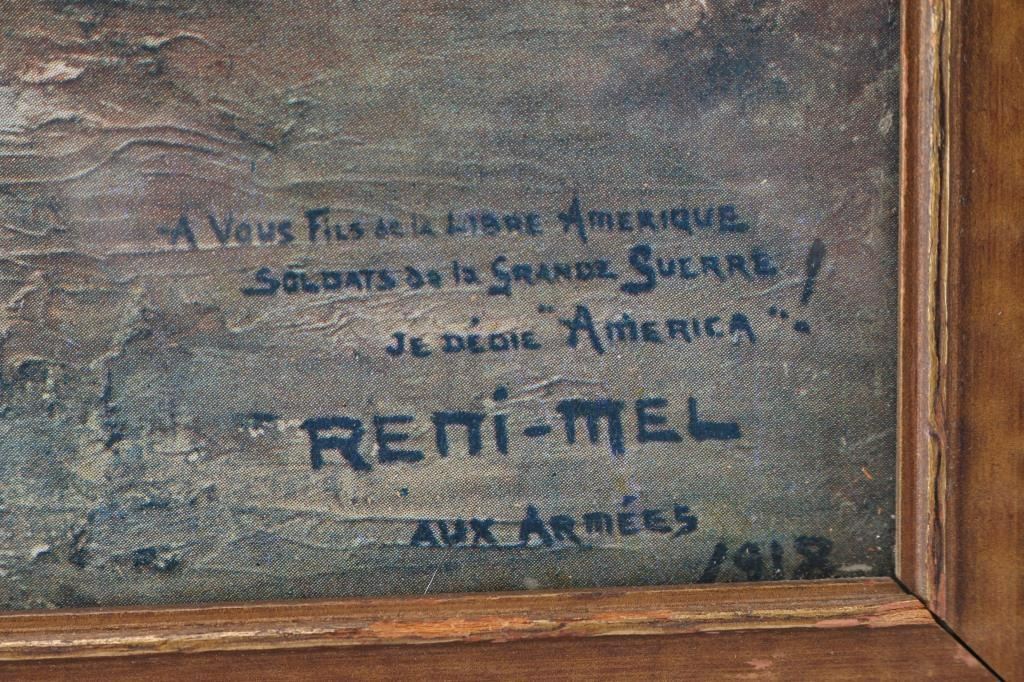 A Vous Fils de la LIBRE AMERIQUE
SOLDATS de la GRANDE GUERRE !
JE DÉDIE "AMERICA".
REMI-MEL
AUX ARMÉES
1918